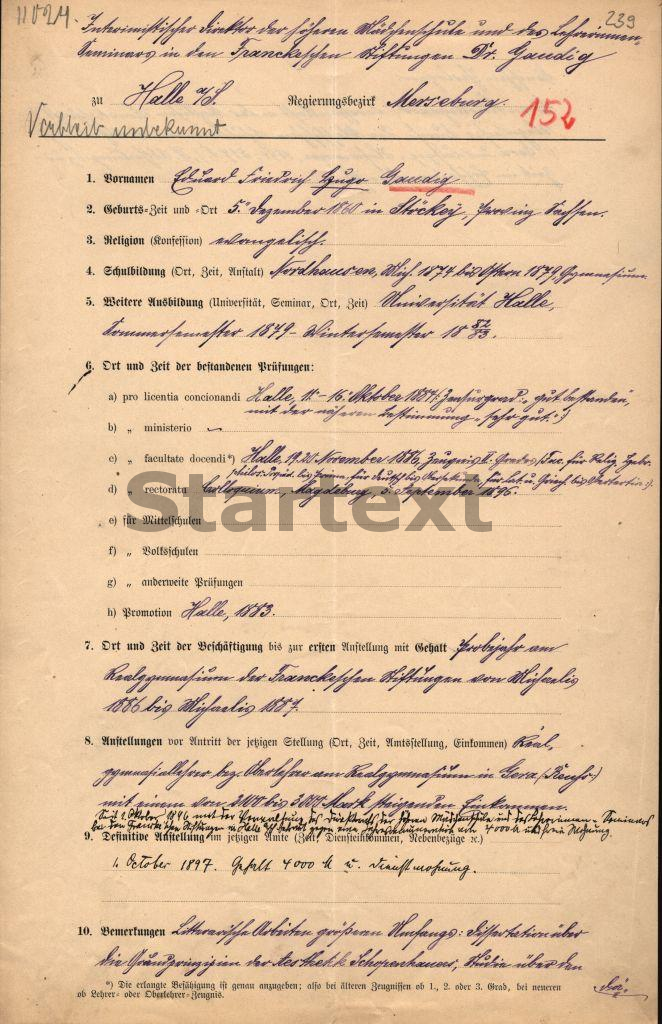 11024.
239
Interimistischer Direktor der höheren Mädchenschule und des Lehrerinnen-
Seminars in den Franckeschen Stiftungen Dr. Gaudig
zu Halle a/S. Regierungsbezirk Merseburg.
152
Verbleib unbekannt
1. Vornamen Eduard Friedrich Hugo Gaudig
2. Geburts-Zeit und -Ort 5. Dezember 1860 in Stöckey, Provinz Sachsen.
3. Religion (Konfession) evangelisch.
4. Schulbildung (Ort, Zeit, Anstalt) Nordhausen, Mich. 1874 bis Ostern 1879, Gymnasium.
5. Weitere Ausbildung (Universität, Seminar, Ort, Zeit) Universität Halle,
Sommersemester 1879 - Wintersemester 18 82/83.
6. Ort und Zeit der bestandenen Prüfungen:
a) pro licentia concionandi Halle, 11. - 16. Oktober 1884 (Zensurgrad: „gut bestanden",
mit der näheren Bestimmung „sehr gut".)
b) „ ministerio
c) „ facultate docendi*) Halle, 19.20 November 1886, Zeugnis II. Grades (Fac. für Relig. Hebr.
bis Prima, für Deutsch bis für Lat. u. Griech. bis
d) „ rectoratu Colloquium, Magdeburg, 5. September 1896.
Startext
e) für Mittelschulen
f) „ Volksschulen
g) „ anderweite Prüfungen
h) Promotion Halle, 1883.
7. Ort und Zeit der Beschäftigung bis zur ersten Anstellung mit Gehalt Probejahr am
Realgymnasium der Franckeschen Stiftungen von Michaelis
1886 bis Michaelis 1887.
8. Anstellungen vor Antritt der jetzigen Stellung (Ort, Zeit, Amtsstellung, Einkommen) Real-
gymnasiallehrer bez. Oberlehrer am Realgymnasium in Gera (Reuß)
mit einem von 2100 bis 3000 Mark steigenden Einkommen.
Seit 1. Oktober 1896 mit der Verwaltung des Direktorats der höheren Mädchenschule und des Lehrerinnen-Seminars
bei den Franckeschen Stiftungen in Halle a/S betraut gegen eine Jahresremuneration von 4000 M und freie Wohnung.
9. Definitive Anstellung im jetzigen Amte (Zeit, Diensteinkommen, Nebenbezüge ꝛc.)
1. October 1897. Gehalt 4000 M u. Dienstwohnung.
10. Bemerkungen Litterarische Arbeiten größeren Umfangs: Dissertation über
die Grundprinzipien der Aesthetik Schopenhauers, Studie über den
*) Die erlangte Befähigung ist genau anzugeben; also bei älteren Zeugnissen ob 1., 2. oder 3. Grad, bei neueren
ob Lehrer- oder Oberlehrer-Zeugnis.